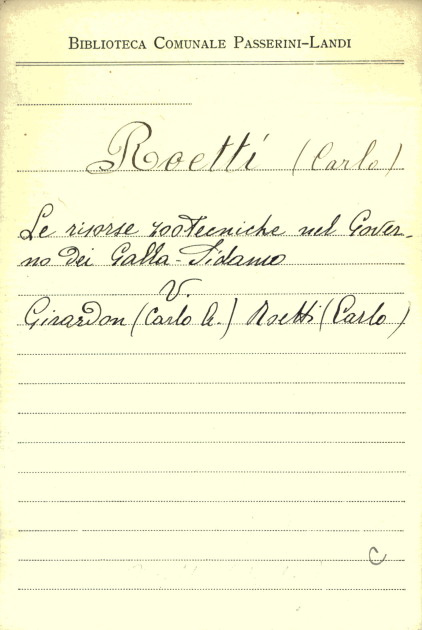 BIBLIOTECA COMUNALE PASSERINI-LANDI
Roetti (Carlo)
Le risorse zootecniche nel Gover-
no dei Galla-Sidamo
V.
Girardon (Carlo A.) Roetti (Carlo)
C